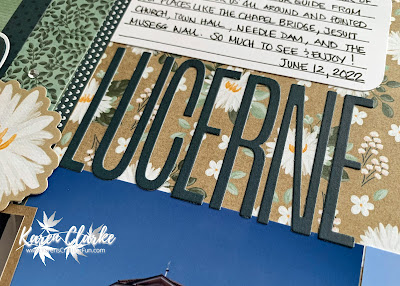 GUIDE FROM
US ALL AROUND AND POINTED
PLACES LIKE THE CHAPEL BRIDGE, JESUIT
CHURCH, TOWN HALL, NEEDLE DAM, AND THE
MUSEGG WALL. SO MUCH TO SEE & ENJOY!
JUNE 12, 2022
LUCERNE
Karen Clarke